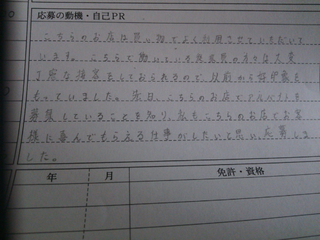 応募の動機・自己PR
こちらのお店は買い物でよく利用させていただいて
います。こちらで働いている従業員の方々は大変
丁寧な接客をしておられるので、以前から好印象を
もっていました。先日、こちらのお店でアルバイトを
募集していることを知り、私もこちらのお店でお客
様に喜んでもらえる仕事がしたいと思い、応募しま
した。
年 月 免許・資格